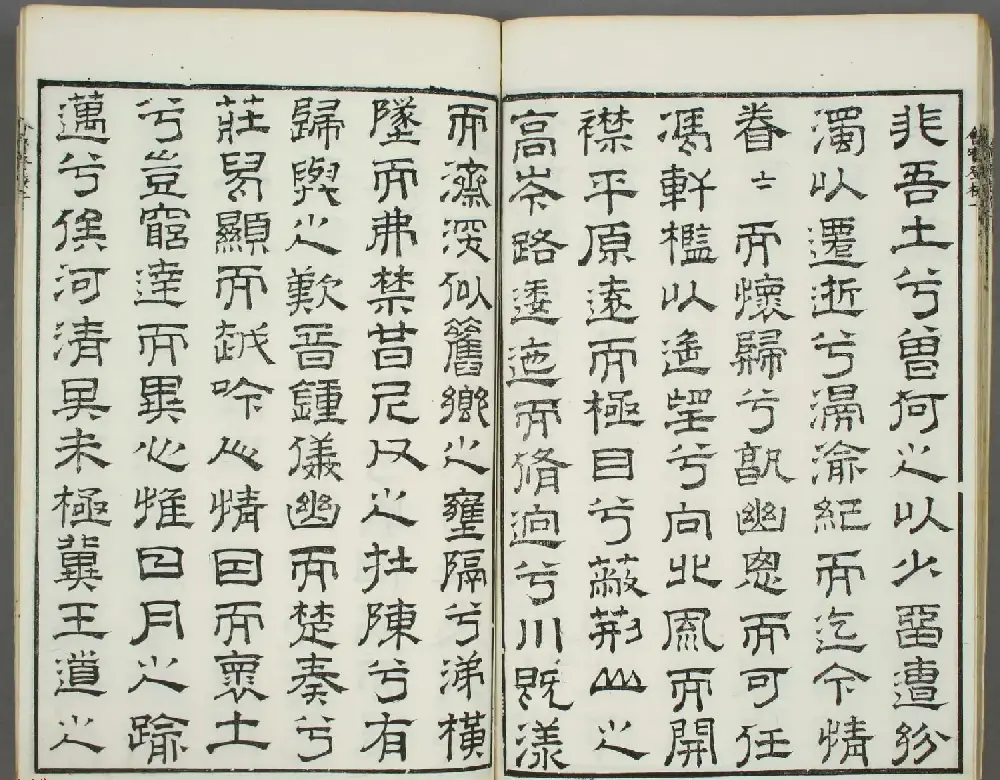 非吾土兮曾何之以少畱遭紛
濁以遷逝兮漏渝紀而迄今情
眷〻而懷歸兮孰幽思而可任
馮軒檻以遙望兮向北風而開
襟平原遠而極目兮蔽荊山之
高岑路逶迤而脩逈兮川既漾
而濟深似舊鄉之壅隔兮涕橫
墜而弗禁昔尼父之在陳兮有
歸與之歎晉鍾儀幽而楚奏兮
莊舄顯而越吟心情同而褱土
兮豈窮達而異心惟日月之踰
邁兮俟河清其未極冀王道之